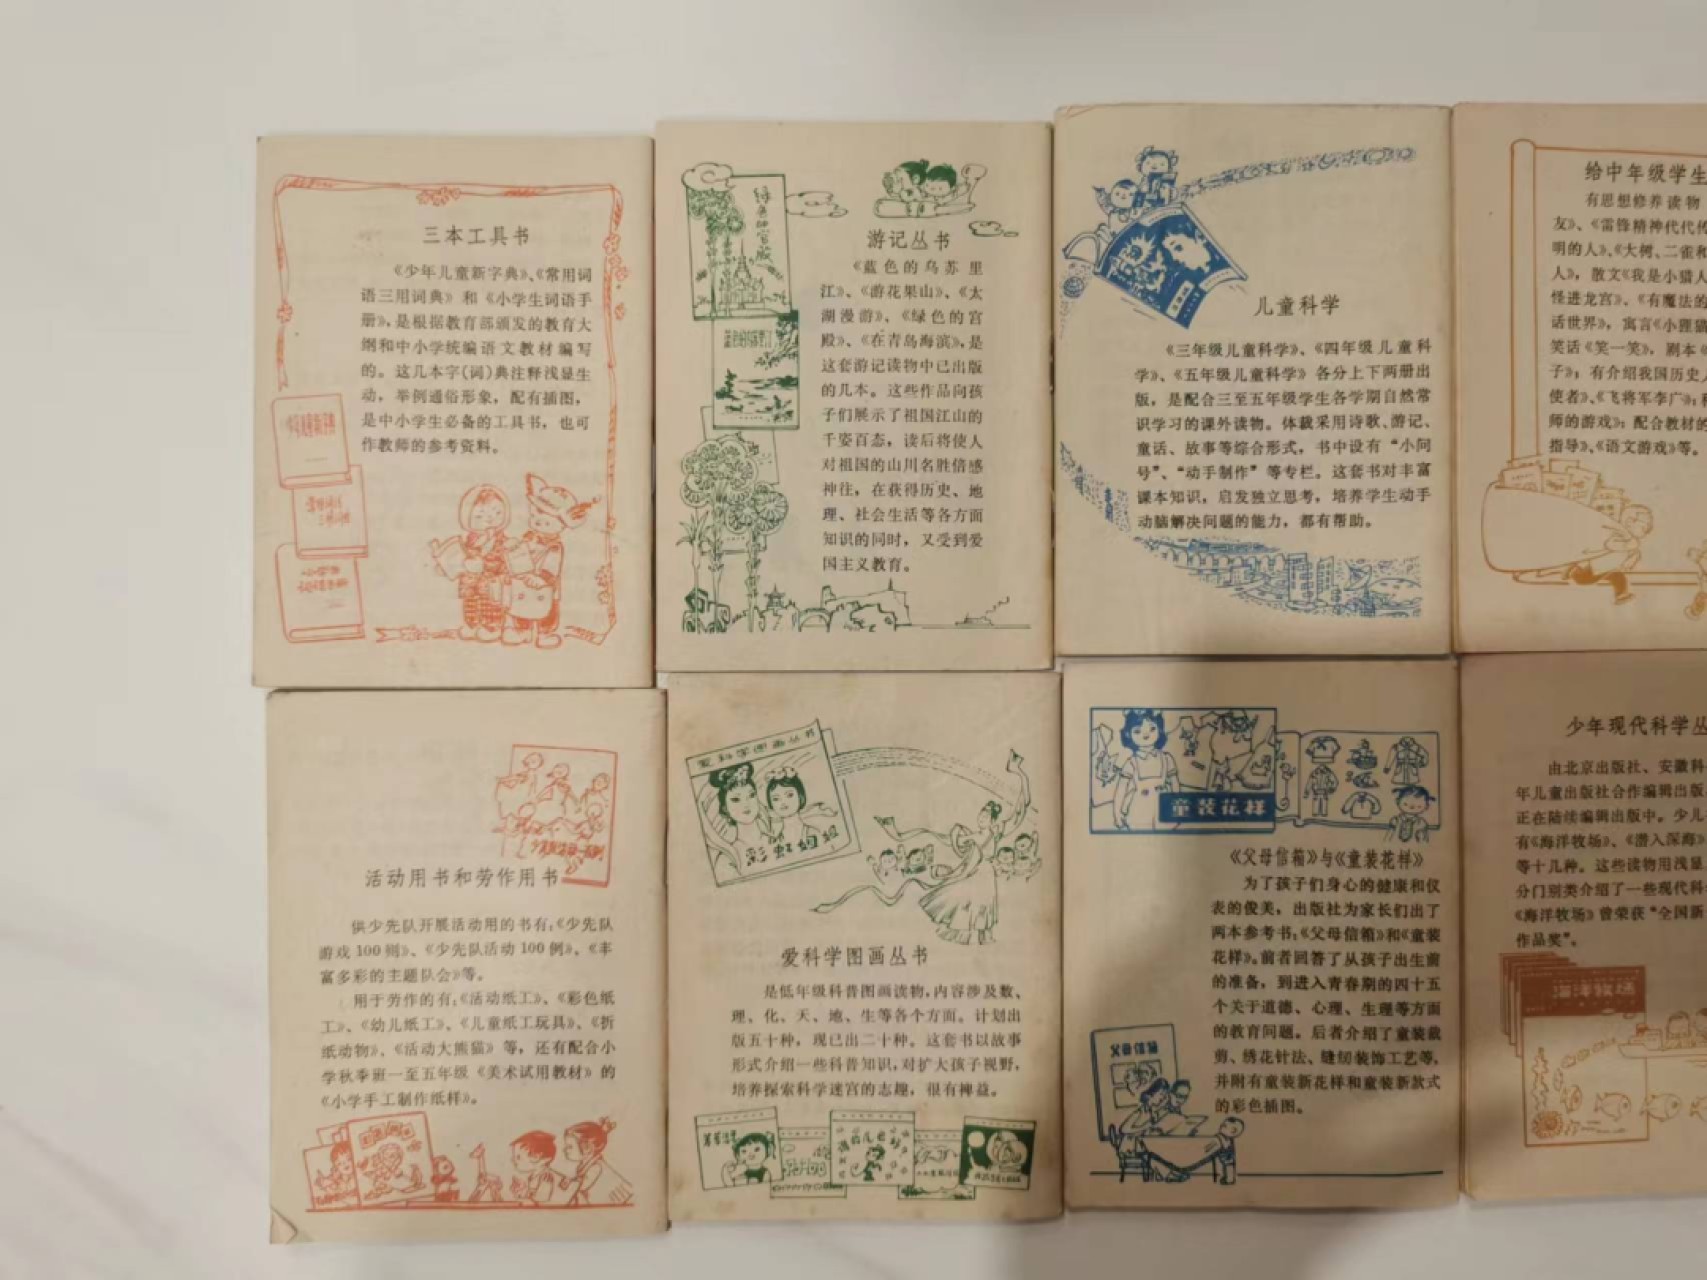 三本工具书
《少年儿童新字典》、《常用词
语三用词典》和《小学生词语手
册》，是根据教育部颁发的教育大
纲和中小学统编语文教材编写
的。这几本字(词)典注释浅显生
动，举例通俗形象，配有插图，
是中小学生必备的工具书，也可
作教师的参考资料。
绿色的宫殿
游记丛书
《蓝色的乌苏里
江》、《游花果山》、《太
湖漫游》、《绿色的宫
殿》、《在青岛海滨》，是
这套游记读物中已出版
的几本。这些作品向孩
子们展示了祖国江山的
千姿百态，读后将使人
对祖国的山川名胜倍感
神往，在获得历史、地
理、社会生活等各方面
知识的同时，又受到爱
国主义教育。
儿童科学
《三年级儿童科学》、《四年级儿童科
学》、《五年级儿童科学》各分上下两册出
版，是配合三至五年级学生各学期自然常
识学习的课外读物。体裁采用诗歌、游记、
童话、故事等综合形式，书中设有“小问
号”、“动手制作”等专栏。这套书对丰富
课本知识，启发独立思考，培养学生动手
动脑解决问题的能力，都有帮助。
给中年级学生
有思想修养读物
友》、《雷锋精神代代传
明的人》、《大树、二雀和
人》，散文《我是小猎人
怪进龙宫》、《有魔法的
话世界》，寓言《小狸猫
笑话《笑一笑》，剧本《
子》；有介绍我国历史人
使者》、《飞将军李广》；
师的游戏》；配合教材的
指导》、《语文游戏》等。
活动用书和劳作用书
供少先队开展活动用的书有：《少先队
游戏100则》、《少先队活动100例》、《丰
富多彩的主题队会》等。
用于劳作的有：《活动纸工》、《彩色纸
工》、《幼儿纸工》、《儿童纸工玩具》、《折
纸动物》、《活动大熊猫》等，还有配合小
学秋季班一至五年级《美术试用教材》的
《小学手工制作纸样》。
爱科学图画丛书
彩虹姐姐
爱科学图画丛书
是低年级科普图画读物，内容涉及数、
理、化、天、地、生等各个方面。计划出
版五十种，现已出二十种。这套书以故事
形式介绍一些科普知识，对扩大孩子视野，
培养探索科学迷宫的志趣，很有裨益。
童装花样
《父母信箱》与《童装花样》
为了孩子们身心的健康和仪
表的俊美，出版社为家长们出了
两本参考书：《父母信箱》和《童装
花样》。前者回答了从孩子出生前
的准备，到进入青春期的四十五
个关于道德、心理、生理等方面
的教育问题。后者介绍了童装裁
剪、绣花针法、缝纫装饰工艺等，
并附有童装新花样和童装新款式
的彩色插图。
父母信箱
少年现代科学丛
由北京出版社、安徽科
年儿童出版社合作编辑出版
正在陆续编辑出版中。少儿
有《海洋牧场》、《潜入深海》
等十几种。这些读物用浅显
分门别类介绍了一些现代科
《海洋牧场》曾荣获“全国新
作品奖”。
海洋牧场